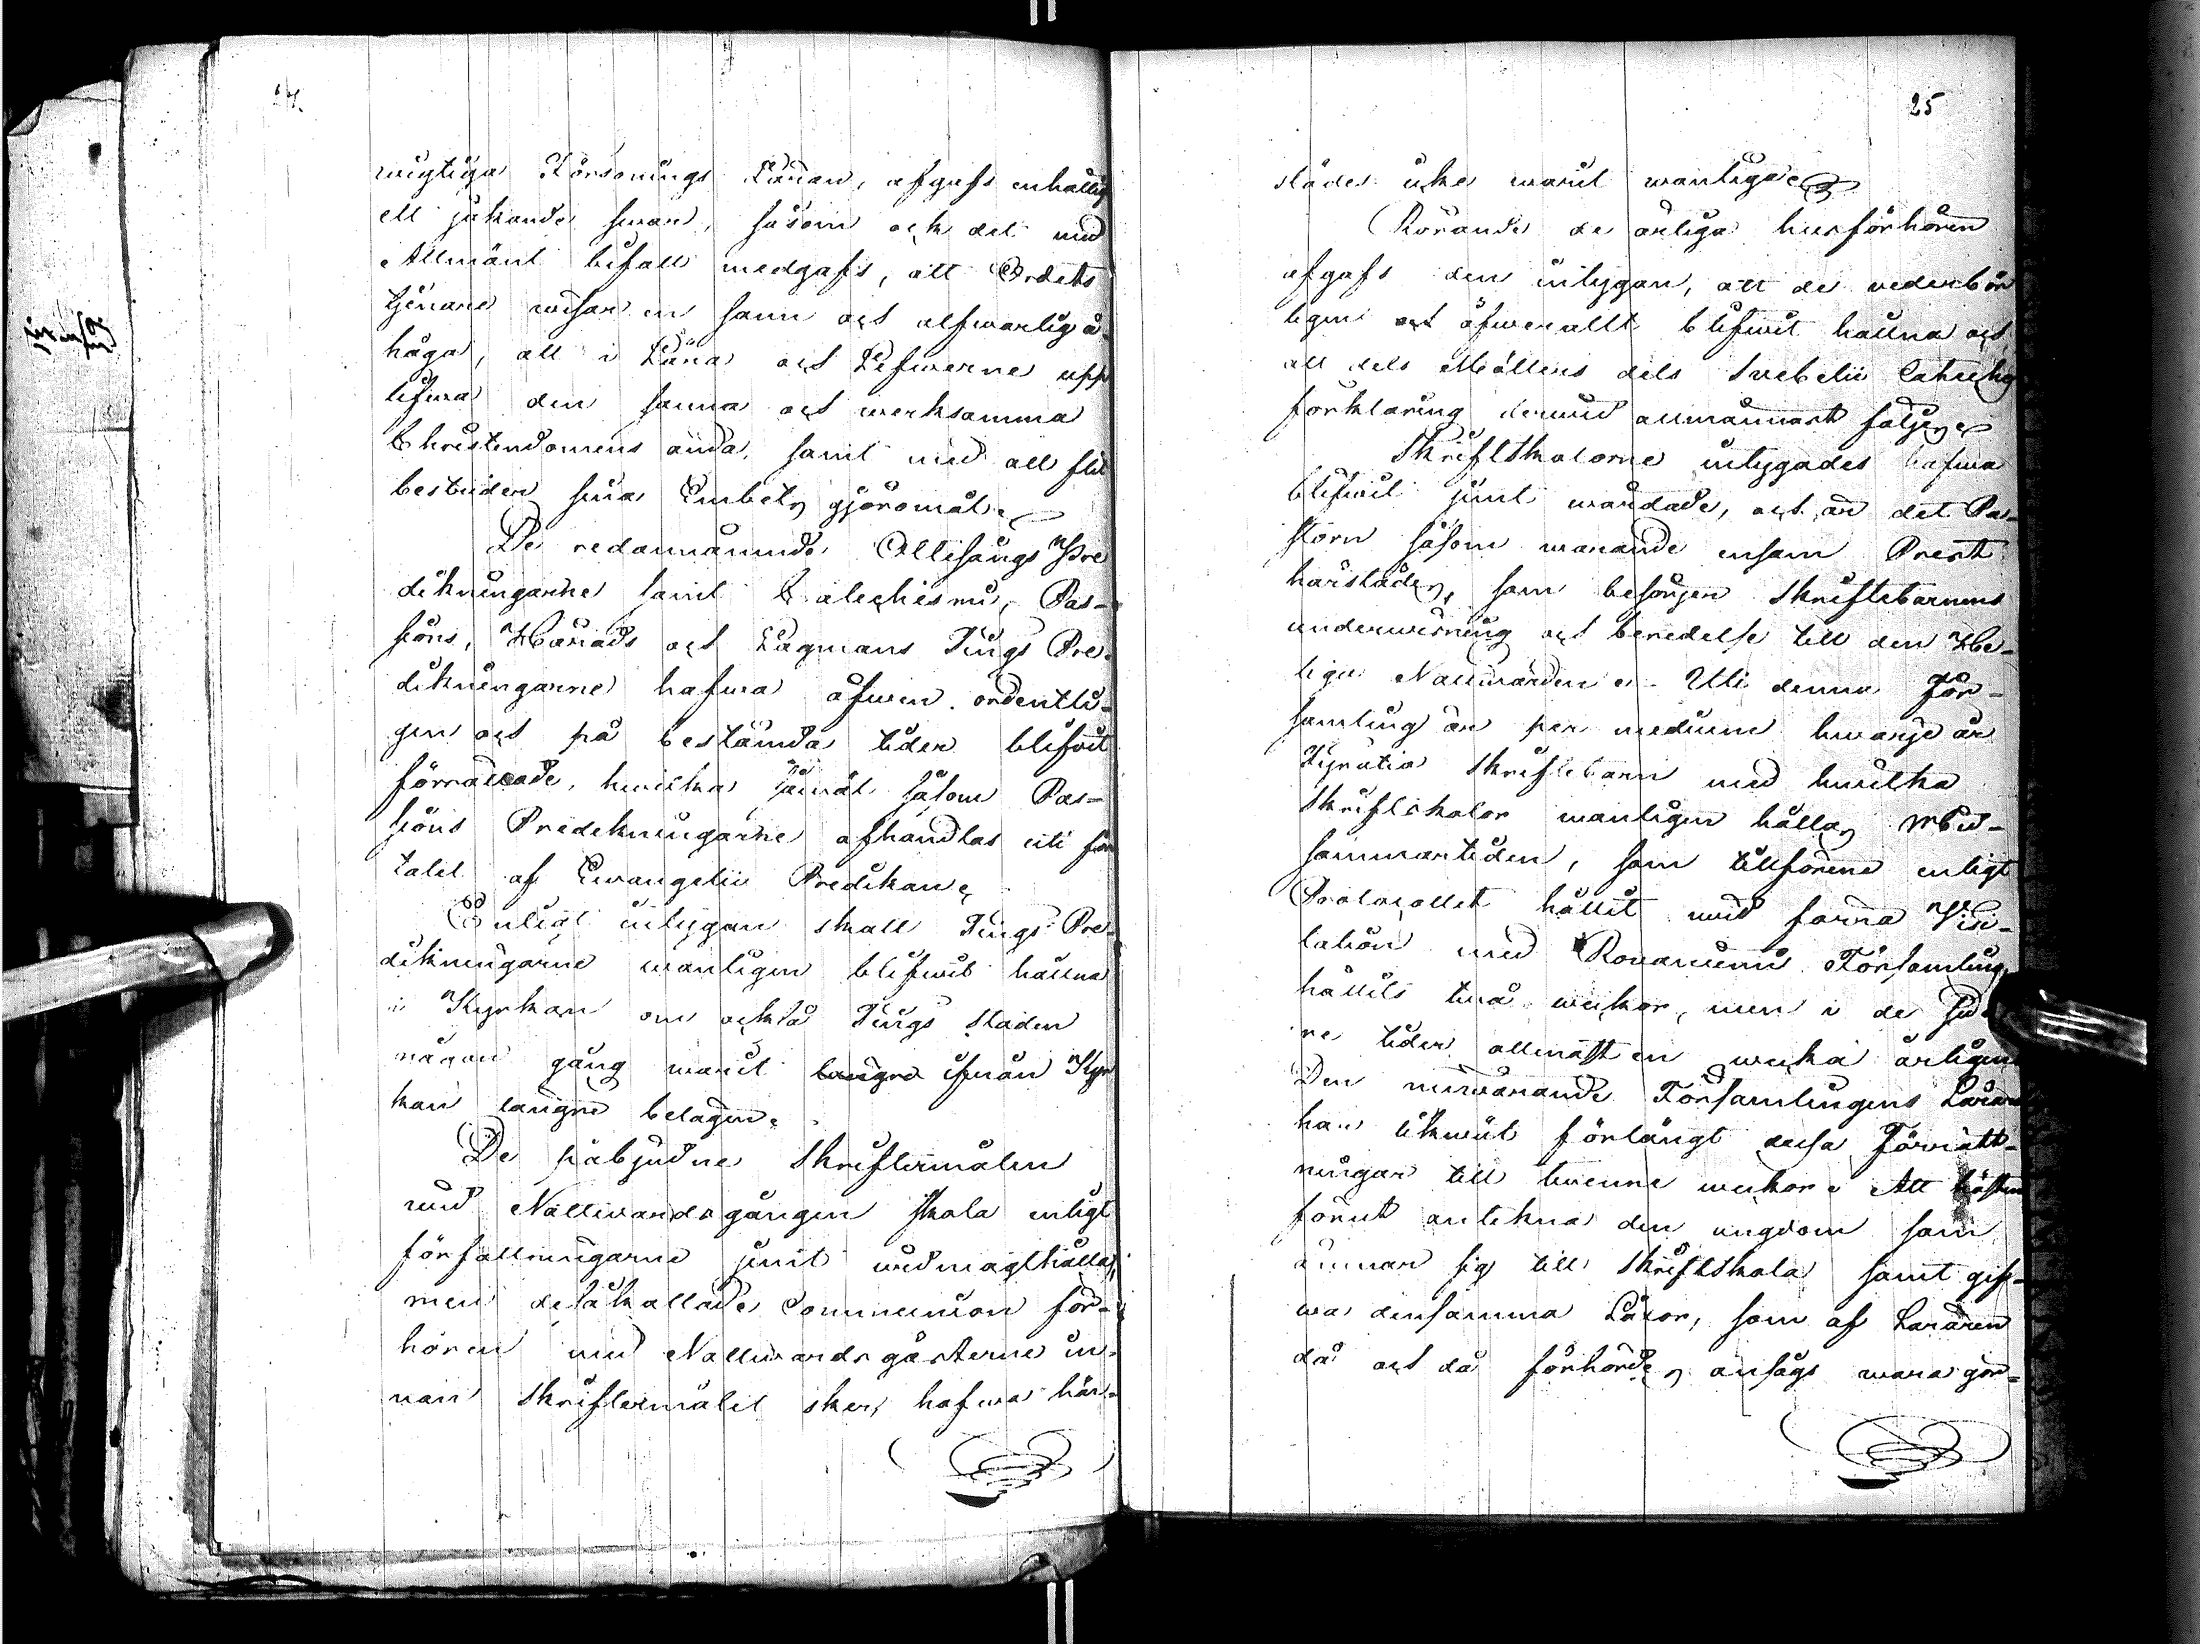 24.
wigtiga Försonings Läran, afgafs enhällig
ett jakande swar, såsom ock det med
Allmänt bifall medgafs, att Ordets
tjenare wisar en sann och alfwarlig å-
håga, att i Lära och Lefwerne upp
lifwa den sanna och werksamma
Christendomens anda, samt med all flit
bestrider sina Embets gjöromål.
De redannämnde Ottesångs Pre
dikningarne samt Catechismi, Pas-
sions, Härads och Lagmans Tings Pre-
dikningarne hafwa äfwen ordentli-
gen och på bestämda tider blifwit
förrättade, hwilka jemwäl såsom Pas-
sions Predikningarne afhandlas uti för
talet af Ewangelii Predikan.
Enligt intygan skall Tings Pre-
dikningarne wanligen blifwit hållna
i Kyrkan om också Tings staden
någon gång warit längre ifrån Kyr
kan längre belägen.
De påbjudne Skriftermålen
wid Nattwardsgången skola enligt
författningarne jemt widmagthållas,
men de såkallade Communion för-
hören med Nattwardsgästerne in-
nan Skriftermålet sker, hafwa här-
25
städes icke warit wanliga.
Rörande de årliga husförhören
afgafs den intygan, att de vederbör
ligen och öfwerallt blifwit hållna och
att dels Möllers dels Svebelii Cateches
förklaring derwid allmännast följes.
Skriftskolorne intygades hafwa
blifwit jemt wårdade, och är det Pa-
storn såsom warande ensam Prest
härstädes, som besörjer Skriftebarnens
underwisning och beredelse till den He-
liga Nattwarden. Uti denna För-
samling är per medium hwarje år
Tyratio Skriftebarn med hwilka
Skriftskolor wanligen hållas Mid-
sommartiden, som tillförene enligt
Protocollet hållit wid förra Visi-
tation med Rovaniemi Församling,
hållits twå weckor, men i de sid
re tider allenast en wecka årligen
Den nuwarande Församlingens Lärare
har likwäl förlängt dessa Förrätt-
ningar till twenne weckor. Att hösten
förut anteckna den ungdom som
ämnar sig till Skriftskola samt gif-
wa densamma Läxor, som af Läraren
då och då förhördes, ansågs wara gör-